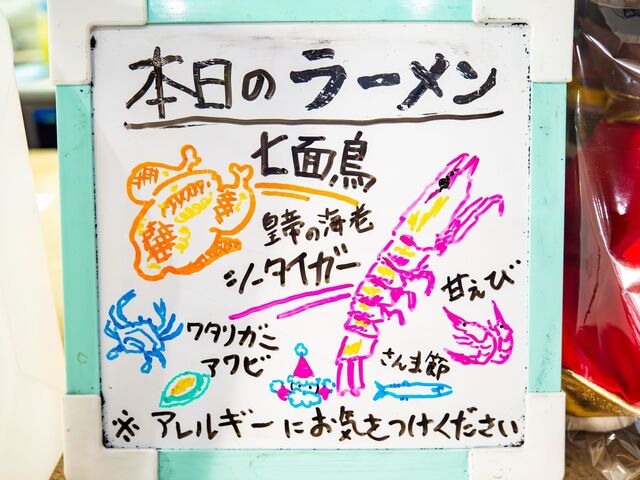 本日のラーメン
七面鳥
皇帝の海老
シータイガー
甘えび
ワタリガニ
アワビ
さんま節
※アレルギーにお気をつけください